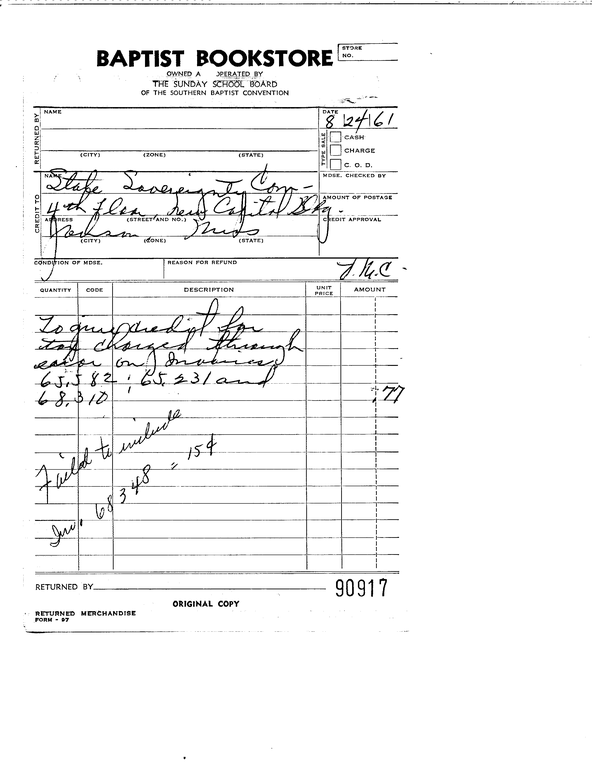 BAPTIST BOOKSTORE
STORE NO.
OWNED A OPERATED BY
THE SUNDAY SCHOOL BOARD
OF THE SOUTHERN BAPTIST CONVENTION
RETURNED BY
NAME
(CITY) (ZONE) (STATE)
DATE
8 24 61
TYPE SALE
CASH
CHARGE
C. O. D.
CREDIT TO
NAME
State Sovereignty Com-
MDSE. CHECKED BY
4th floor New Capitol Bldg.
AMOUNT OF POSTAGE
ADDRESS (STREET AND NO.)
CREDIT APPROVAL
Jackson Miss
(CITY) (ZONE) (STATE)
CONDITION OF MDSE. REASON FOR REFUND
QUANTITY CODE DESCRIPTION UNIT PRICE AMOUNT
To give credit for
tax charged through
error on Invoices
65,582 ; 65,231 and
68,310 .77
Failed to include
Inv. 68348 = 15¢
RETURNED BY
90917
ORIGINAL COPY
RETURNED MERCHANDISE
FORM - 97